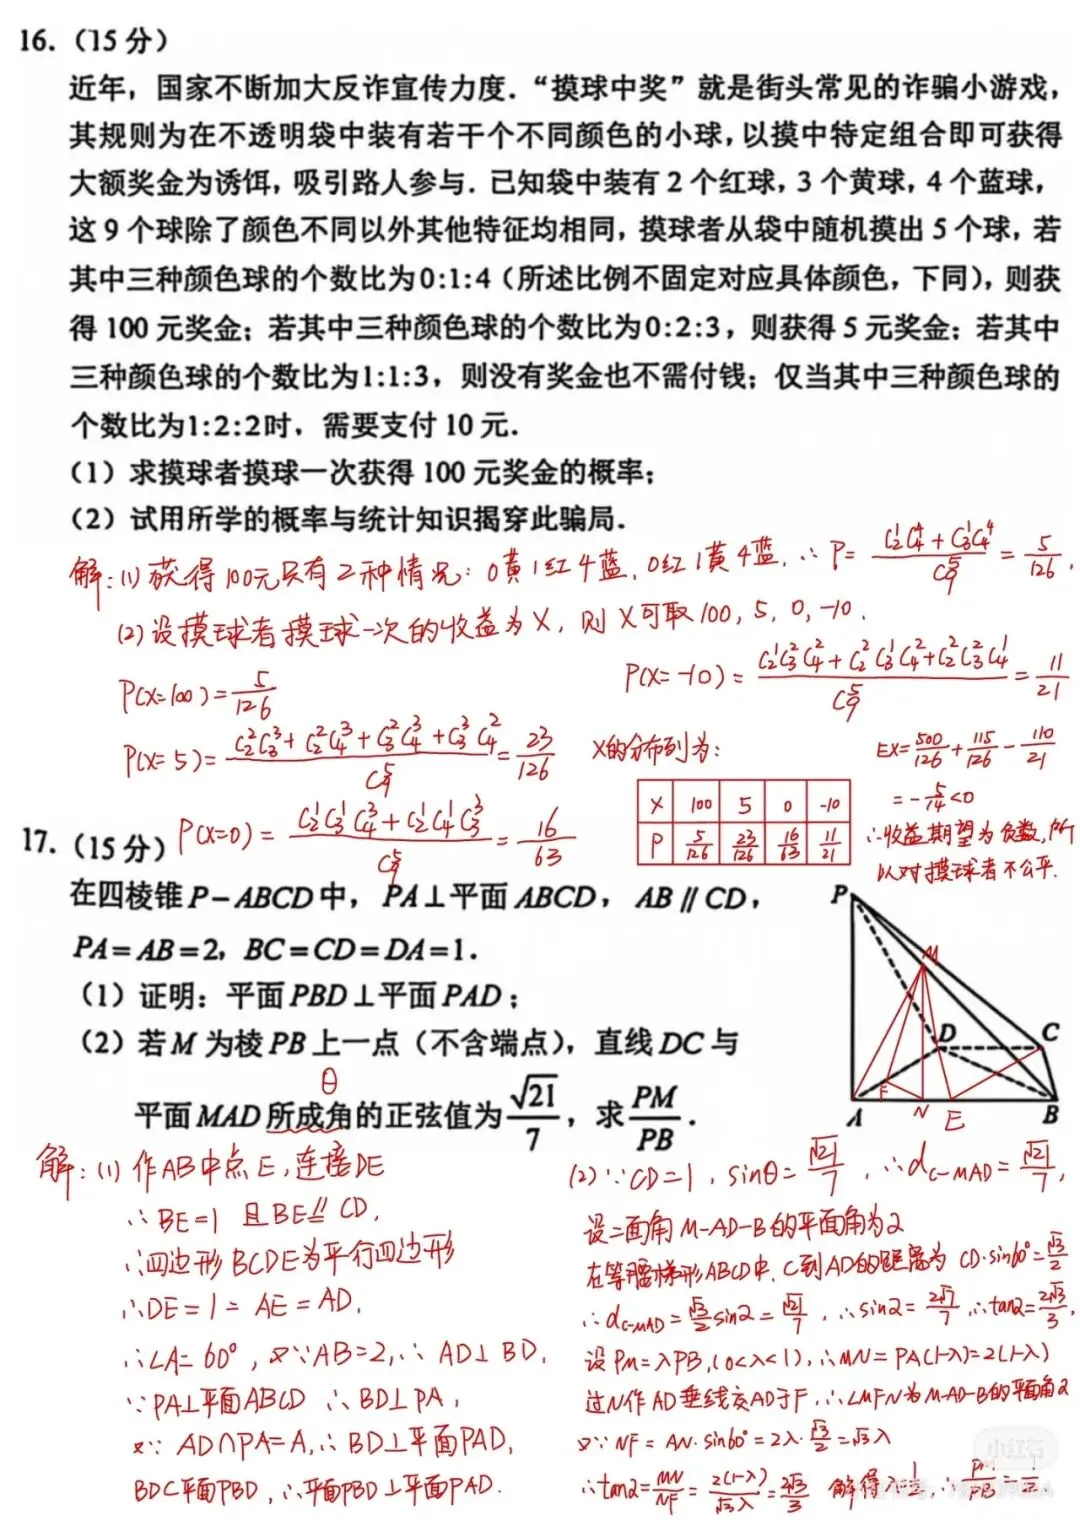 16.（15 分）
近年，国家不断加大反诈宣传力度．“摸球中奖”就是街头常见的诈骗小游戏，
其规则为在不透明袋中装有若干个不同颜色的小球，以摸中特定组合即可获得
大额奖金为诱饵，吸引路人参与．已知袋中装有 2 个红球，3 个黄球，4 个蓝球，
这 9 个球除了颜色不同以外其他特征均相同，摸球者从袋中随机摸出 5 个球，若
其中三种颜色球的个数比为0:1:4（所述比例不固定对应具体颜色，下同），则获
得 100 元奖金；若其中三种颜色球的个数比为0:2:3，则获得 5 元奖金；若其中
三种颜色球的个数比为1:1:3，则没有奖金也不需付钱；仅当其中三种颜色球的
个数比为1:2:2时，需要支付 10 元．
（1）求摸球者摸球一次获得 100 元奖金的概率；
（2）试用所学的概率与统计知识揭穿此骗局．
解:(1)获得100元只有2种情况: 0黄1红4蓝, 0红1黄4蓝, ∴P= (C₂¹C₄⁴+C₃¹C₄⁴)/C₉⁵ = 5/126,
(2)设摸球者摸球一次的收益为X, 则X可取100, 5, 0, -10.
P(X=100)=5/126
P(X=-10)= (C₂¹C₃²C₄²+C₂²C₃¹C₄²+C₂²C₃²C₄¹)/C₉⁵ = 11/21
P(X=5)= (C₂²C₃³+C₂²C₄³+C₃²C₄³+C₃³C₄²)/C₉⁵ = 23/126
P(X=0)= (C₂¹C₃¹C₄³+C₂¹C₄¹C₃³)/C₉⁵ = 16/63
X的分布列为:
X 100 5 0 -10
P 5/126 23/126 16/63 11/21
EX=500/126+115/126-110/21
=-5/14<0
∴收益期望为负数,所
以对摸球者不公平.
17.（15 分）
在四棱锥 P−ABCD 中， PA⊥平面 ABCD， AB∥CD，
PA=AB=2，BC=CD=DA=1．
（1）证明：平面 PBD⊥平面 PAD；
（2）若 M 为棱 PB 上一点（不含端点），直线 DC 与
θ
平面 MAD 所成角的正弦值为 √21/7，求 PM/PB．
P
M
D
C
F
A
N
E
B
解:(1)作AB中点E,连接DE
∴BE=1 且BE∥CD,
∴四边形BCDE为平行四边形
∴DE=1=AE=AD,
∴∠A=60°, 又∵AB=2,∴AD⊥BD,
∵PA⊥平面ABCD ∴BD⊥PA,
又∵AD∩PA=A,∴BD⊥平面PAD,
BD⊂平面PBD, ∴平面PBD⊥平面PAD.
(2)∵CD=1, sinθ=√21/7, ∴d_C-MAD=√21/7,
设二面角M-AD-B的平面角为2
在等腰梯形ABCD中, C到AD的距离为 CD·sin60°=√3/2
∴d_C-MAD=√3/2 sin2=√21/7, ∴sin2=2√7/7,∴tan2=2√3/3,
设PM=λPB,(0<λ<1),∴MN=PA(1-λ)=2(1-λ)
过N作AD垂线交AD于F,∴∠MFN为M-AD-B的平面角2
又∵NF=AN·sin60°=2λ·√3/2=√3λ
∴tan2=MN/NF=2(1-λ)/√3λ=2√3/3 解得λ=1/2, ∴PM/PB=1/2
小红书